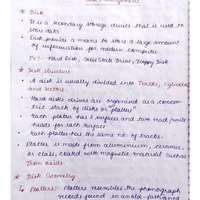 * Disk
• It is a secondary storage device that is used to
store data
• Disk provide a means to store a large amount
of information for modern computer
Ex :- Hard Disk, Solid State Drive, Floppy Disk
* Disk structure
* A disk is usually divided into Tracks, cylinders
and sectors
• Hard disks drives are organized as a concen-
tric stack of disks or "platter"
• Each platter has 2 surfaces and two read/write
heads for each surface
• Each platter has the same no. of tracks.
• Platter is made from aluminium, ceramic,
or class, coated with magnetic material such as
Iron oxide
* Disk Geometry
Platters: Platter resembles the phonograph
records found in an old-fashioned